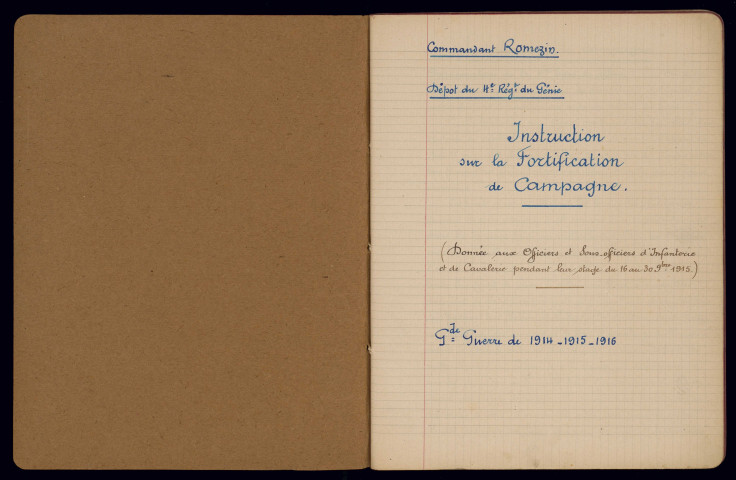 Commandant Romezin.
Dépôt du 4e Régt du Génie
Instruction
sur la Fortification
de Campagne.
(Donnée aux Officiers et Sous-officiers d'Infanterie
et de Cavalerie pendant leur stage du 16 au 30 9bre 1915.)
Gde Guerre de 1914-1915-1916